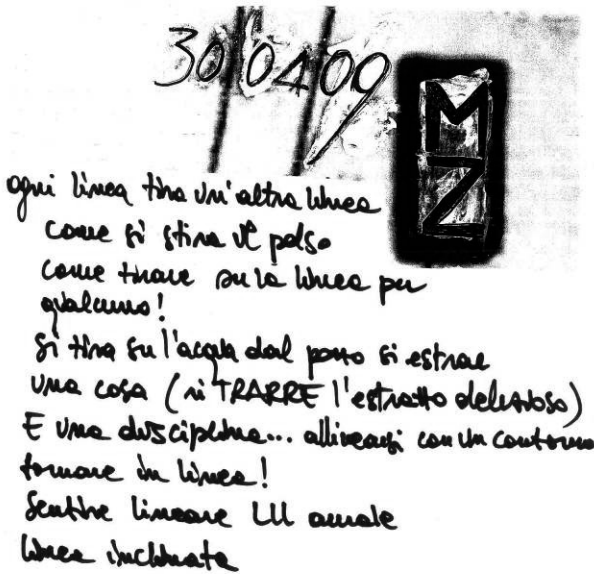 30/04/09
M
Z
ogni linea tira un'altra linea
come si stira il polso
come tirare su la linea per
qualcuno!
si tira su l'acqua dal pozzo si estrae
una cosa (ri TRARRE l'estratto
E una disciplina... allinearsi con un contorno
tornare in linea!
Sentire lineare
linea inclinata